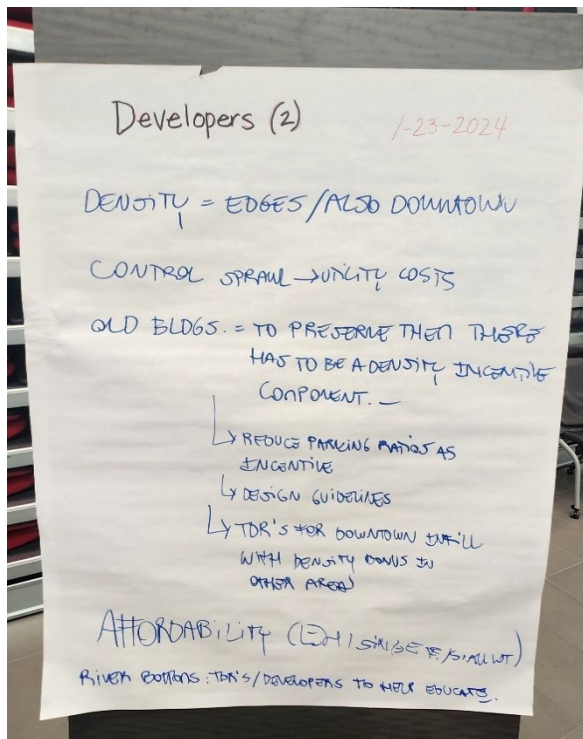 Developers (2)
1-23-2024
DENSITY = EDGES/ALSO DOWNTOWN
CONTROL SPRAWL → UTILITY COSTS
OLD BLDGS. = TO PRESERVE THEM THERE
HAS TO BE A DENSITY INCENTIVE
COMPONENT. —
↳ REDUCE PARKING RATIOS AS
INCENTIVE
↳ DESIGN GUIDELINES
↳ TDR'S FOR DOWNTOWN INFILL
WITH DENSITY BONUS IN
OTHER AREAS
AFFORDABILITY
RIVER BOTTOMS: TDR'S/DEVELOPERS TO HELP EDUCATE.